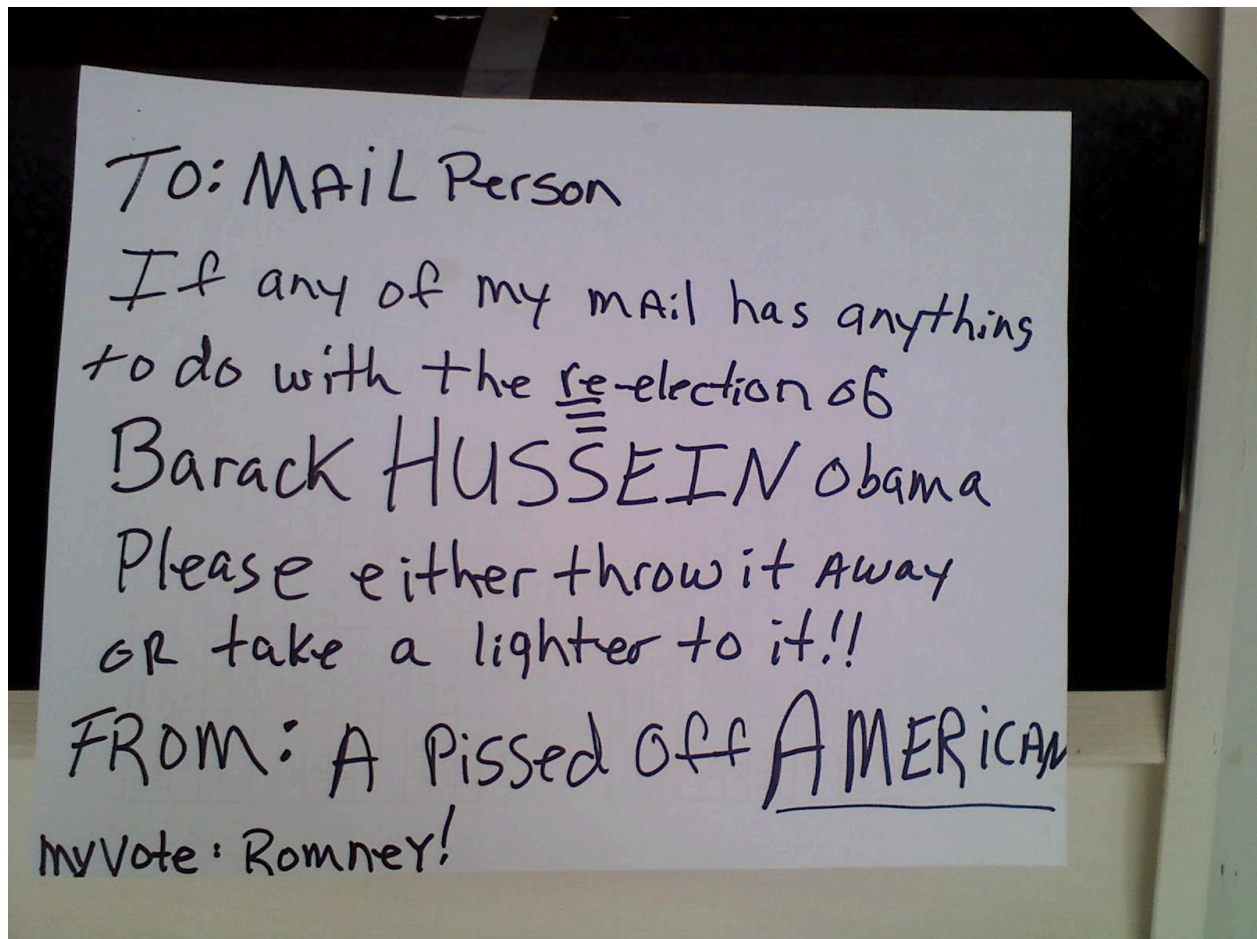 TO: MAiL Person
If any of my mAil has anything
to do with the re-election of
Barack HUSSEIN Obama
Please either throw it AWay
OR take a lighter to it!!
FROM: A Pissed Off AMERiCAN
myVote: Romney!